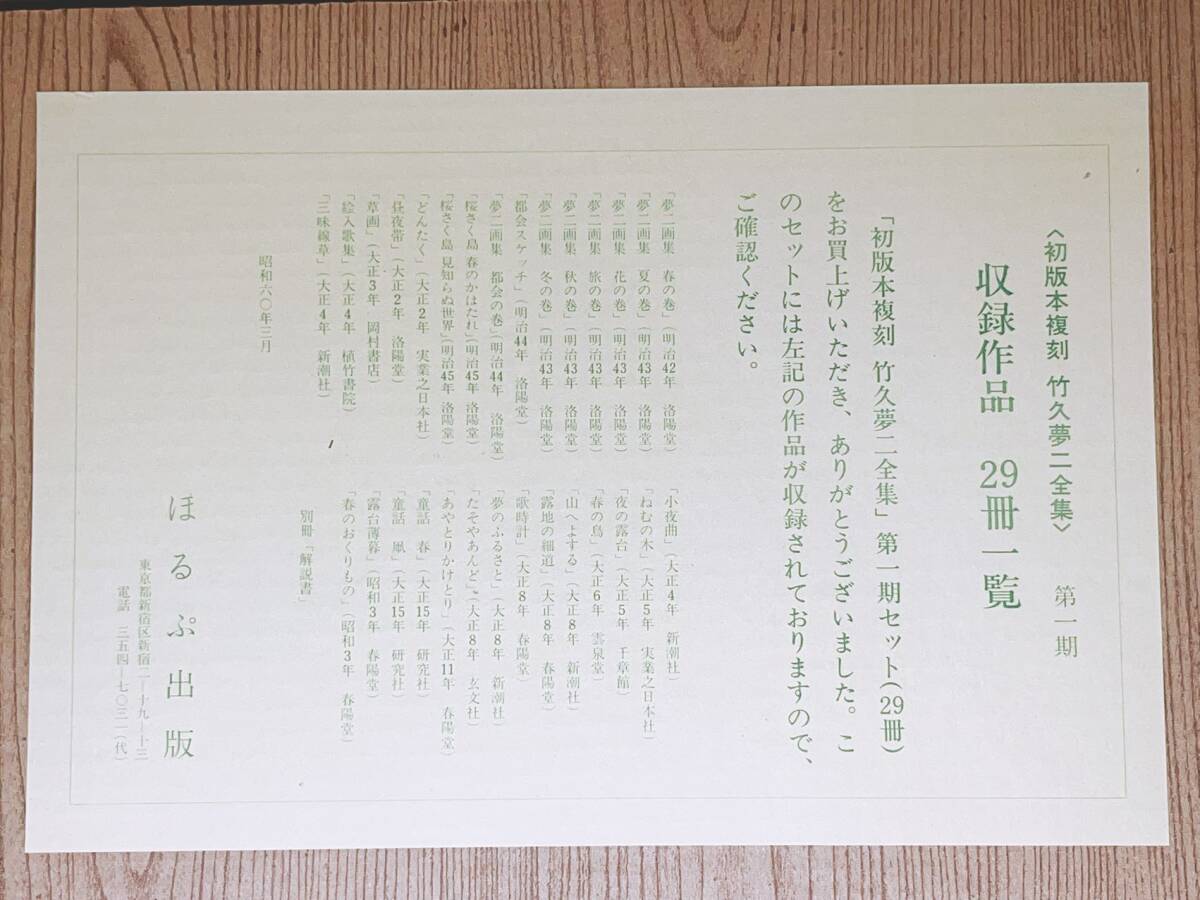 〈初版本複刻 竹久夢二全集〉 第一期
収録作品 29冊一覧
「初版本複刻 竹久夢二全集」第一期セット(29冊)
をお買上げいただき、ありがとうございました。こ
のセットには左記の作品が収録されておりますので、
ご確認ください。
「夢二画集 春の巻」(明治42年 洛陽堂)
「夢二画集 夏の巻」(明治43年 洛陽堂)
「夢二画集 花の巻」(明治43年 洛陽堂)
「夢二画集 旅の巻」(明治43年 洛陽堂)
「夢二画集 秋の巻」(明治43年 洛陽堂)
「夢二画集 冬の巻」(明治43年 洛陽堂)
「都会スケッチ」(明治44年 洛陽堂)
「夢二画集 都会の巻」(明治44年 洛陽堂)
「桜さく島 春のかはたれ」(明治45年 洛陽堂)
「桜さく島 見知らぬ世界」(明治45年 洛陽堂)
「どんたく」(大正2年 実業之日本社)
「昼夜帯」(大正2年 洛陽堂)
「草画」(大正3年 岡村書店)
「絵入歌集」(大正4年 植竹書院)
「三味線草」(大正4年 新潮社)
「小夜曲」(大正4年 新潮社)
「ねむの木」(大正5年 実業之日本社)
「夜の露台」(大正5年 千章館)
「春の鳥」(大正6年 雲泉堂)
「山へよする」(大正8年 新潮社)
「露地の細道」(大正8年 春陽堂)
「歌時計」(大正8年 春陽堂)
「夢のふるさと」(大正8年 新潮社)
「たそやあんど」(大正8年 玄文社)
「あやとりかけとり」(大正11年 春陽堂)
「童話 春」(大正15年 研究社)
「童話 凧」(大正15年 研究社)
「露台薄暮」(昭和3年 春陽堂)
「春のおくりもの」(昭和3年 春陽堂)
別冊「解説書」
昭和六〇年三月
ほるぷ出版
東京都新宿区新宿二―十九―十三
電話 三五四―七〇三一(代)